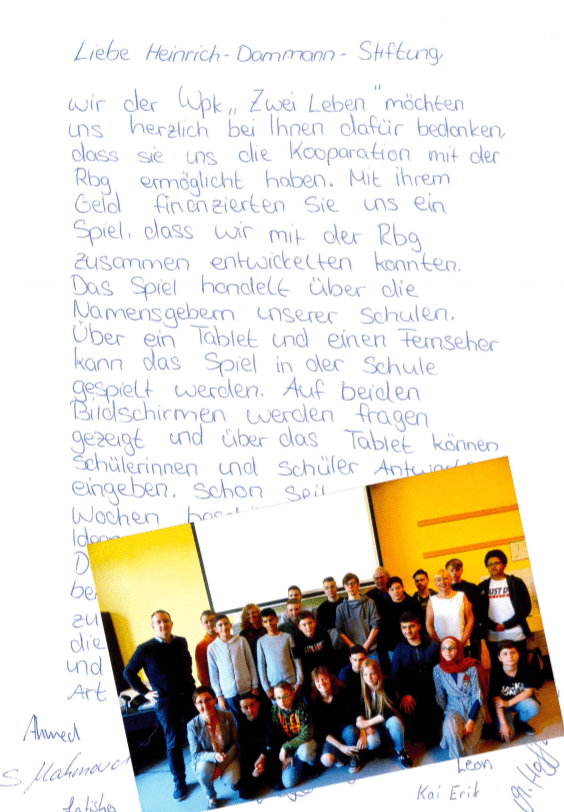 Liebe Heinrich-Dammann-Stiftung,
wir der Wpk „Zwei Leben" möchten
uns herzlich bei Ihnen dafür bedanken,
dass sie uns die Kooparation mit der
Rbg ermöglicht haben. Mit ihrem
Geld finanzierten Sie uns ein
Spiel, dass wir mit der Rbg
zusammen entwickelten konnten.
Das Spiel handelt über die
Namensgebern unserer Schulen.
Über ein Tablet und einen Fernseher
kann das Spiel in der Schule
gespielt werden. Auf beiden
Bildschirmen werden fragen
gezeigt und über das Tablet können
Schülerinnen und Schüler
eingeben. Schon
Wochen
zu
die
und
Art
Ahmed
S. Mahmoud
Leon
Kai Erik
JUST D